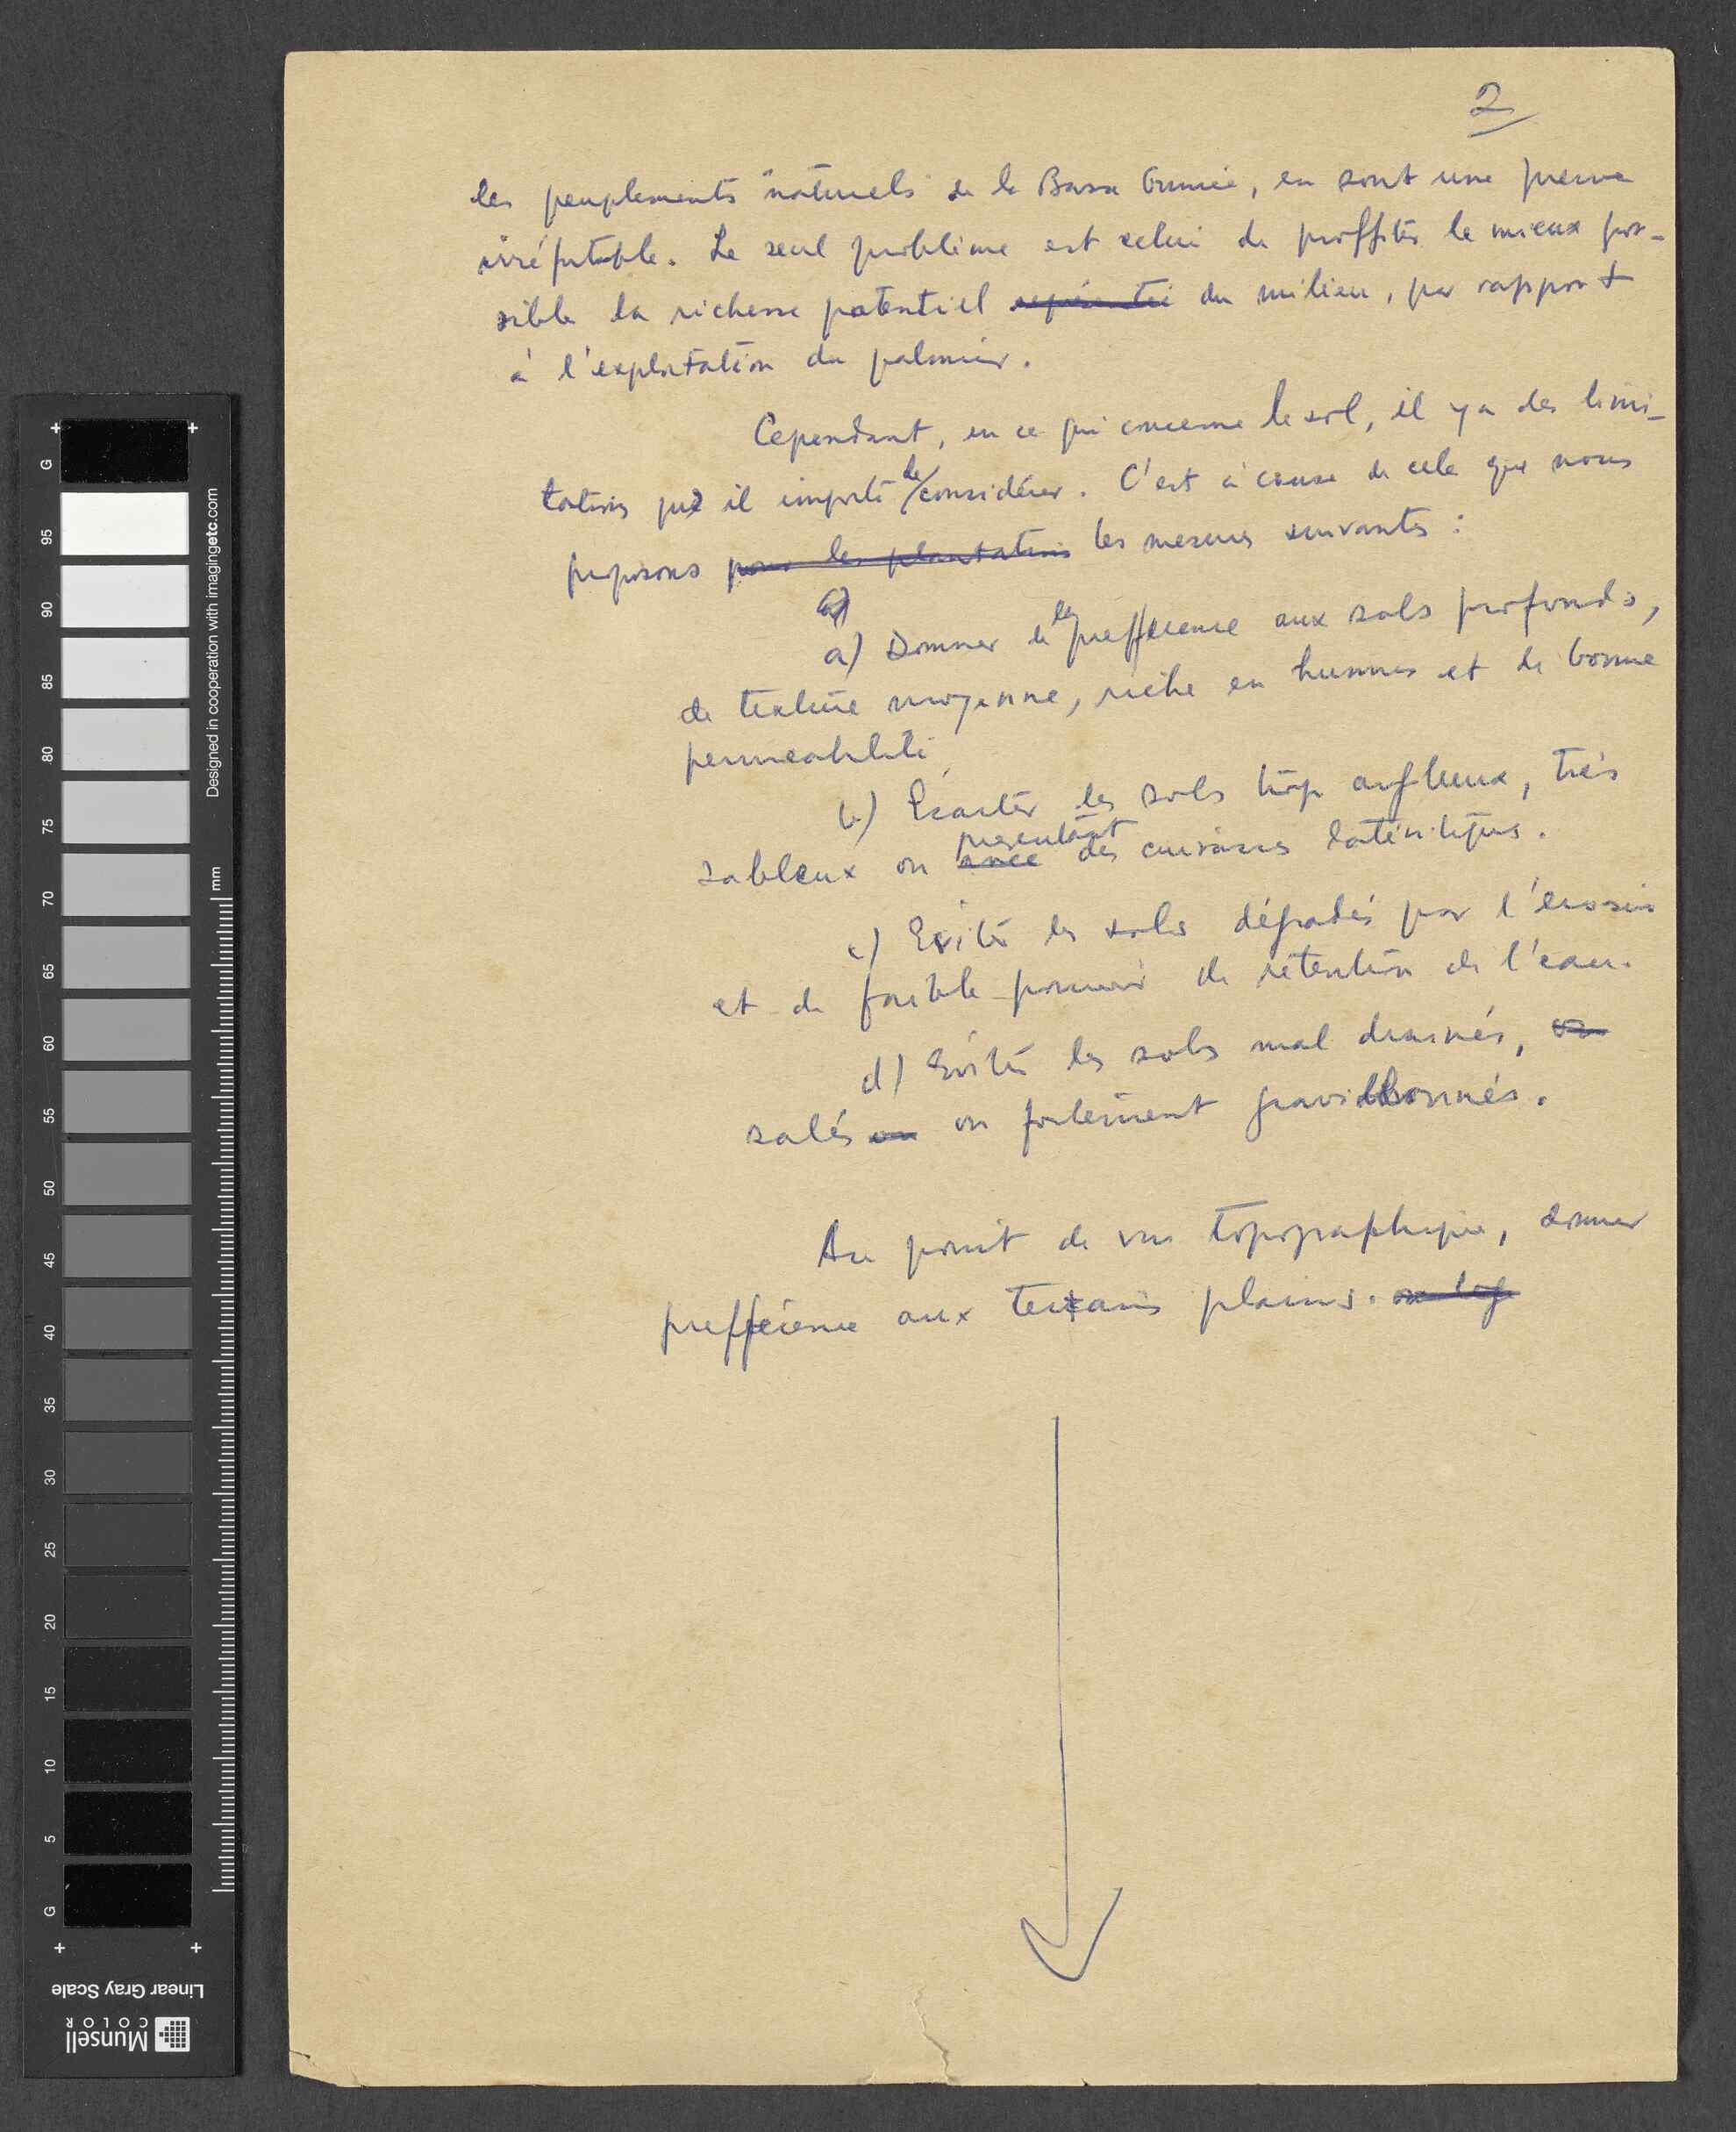 2
les peuplements naturels de la Basse Guinée, en sont une preuve
irréfutable. Le seul problème est celui de proffiter le mieux pos-
sible la richesse potentiel du milieu, par rapport
à l'exploitation du palmier.
Cependant, en ce qui concerne le sol, il y a des limi-
tations qu'il importe de considérer. C'est à cause de cela que nous
proposons pour les plantations les mesures suivantes :
a) Donner la prefférence aux sols profonds,
de texture moyenne, riche en humus et de bonne
permeabilité
b) Ecarter les sols trop argileux, très
sableux ou avec présentant des cuirasses latéritiques.
c) Eviter les sols dégradés par l'érosion
et de faible pouvoir de rétention de l'eau.
d) Eviter les sols mal drainés, ou
salés ou ou fortement gravillonnés.
Au point de vue topographique, donner
prefférence aux terrains plains.
G
95
90
85
80
75
70
65
60
55
50
45
40
35
30
25
20
15
10
5
G
mm
Designed in cooperation with imagingetc.com
Linear Gray Scale
Munsell
COLOR